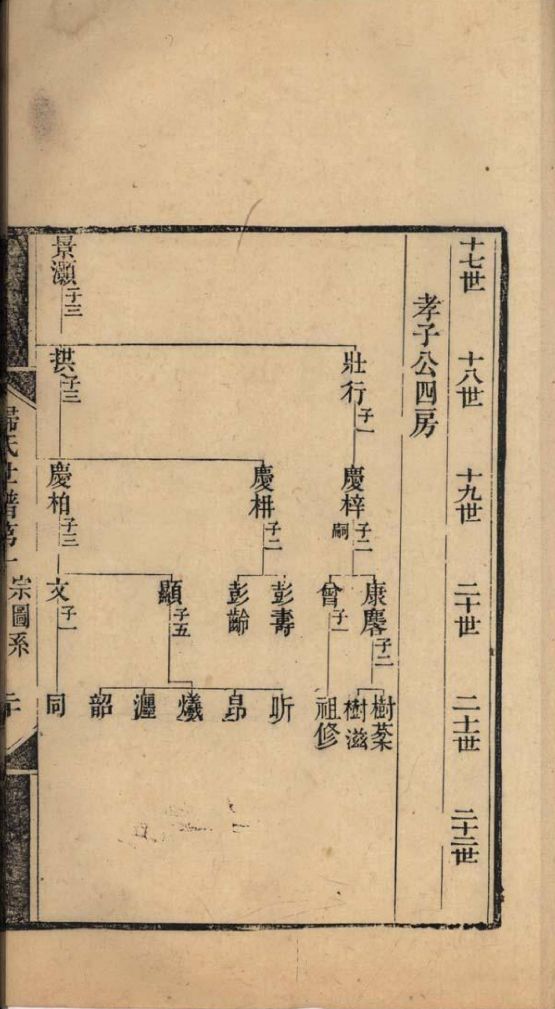 十七世
十八世
十九世
二十世
二十一世
二十二世
孝子公四房
景灝子三
壯行子一
拱子三
慶梓子二嗣
慶枡子二
慶柏子三
康麐子二
會子一
彭壽
彭齡
顯子五
文子一
樹棻
樹滋
祖修
昕
昂
爔
瀍
韶
同
歸氏世譜第一
宗圖系